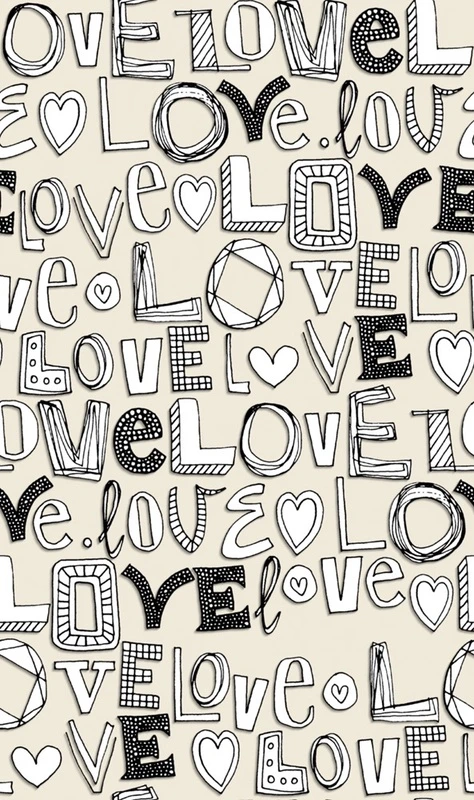 OVE LOVe L
E LOVe.lOV
E LOVe LOVE
ve LOVE LO
LOVE L VE
OVe LOVE LO
Ve.lOVE LO
LOVEl ove
OVE LOve LO
VE LOVE